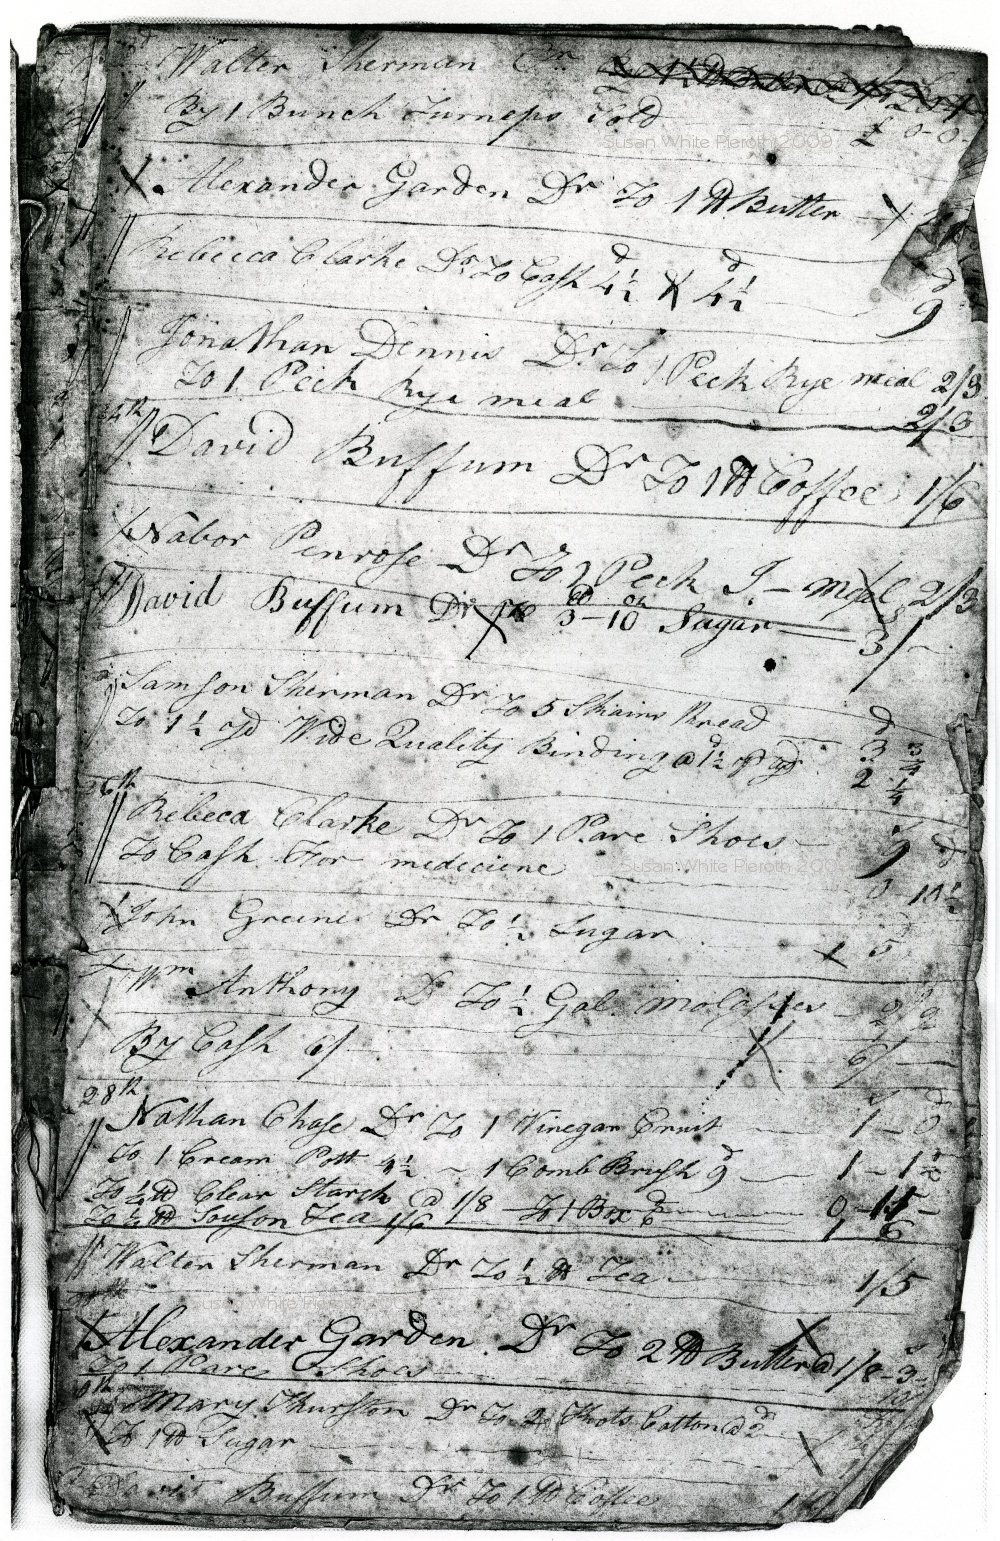 Walter Sherman Cr
By 1 Bunch Turneps Sold £ 0-0-
Susan White Pieroth 2009
Alexander Garden Dr To 1 ℔ Butter
Rebecca Clarke Dr To Cash 4½ d X 4½ d 9 d
Jonathan Dennis Dr To 1 Peck Rye meal 2/3
To 1 Peck Rye meal 2/3
24th
David Buffum Dr To 1 ℔ Coffee 1/6
Nabor Penrose Dr To 1 Peck I-meal 2/3
David Buffum Dr 3-10 Sugar 3/-
Samson Sherman Dr To 5 Skains thread 3 ¾ d
To 1½ yd Wide Quality Binding @ 1½ d pr yd 2 ¼
26th
Rebeca Clarke Dr To 1 Pare Shoes 9
To Cash For medeciene 0 10½ d
Susan White Pieroth 2009
John Greene Dr To ½ Sugar 5 d
Wm Anthony Dr To ½ Gal Molasses
By Cash 6/ 6/-
28th
Nathan Chase Dr To 1 Vinegar Cruit 1-0
To 1 Cream Pott 4½ 1 Comb Brush 9 d 1-1
To ¼ ℔ Clear Starch @ 1/8 To 1 Box 6 d 0-11
To ½ ℔ Souson Tea 1/6 1 6
Walter Sherman Dr To ½ ℔ Tea 1/5
Susan White Pieroth
Alexander Garden Dr To 2 ℔ Butter @ 1/8-3
To 1 Pare Shoes
Mary Thurston Dr To 2 Knots Cotton @ 2 d
To 1 ℔ Sugar
David Buffum Dr To 1 ℔ Coffee